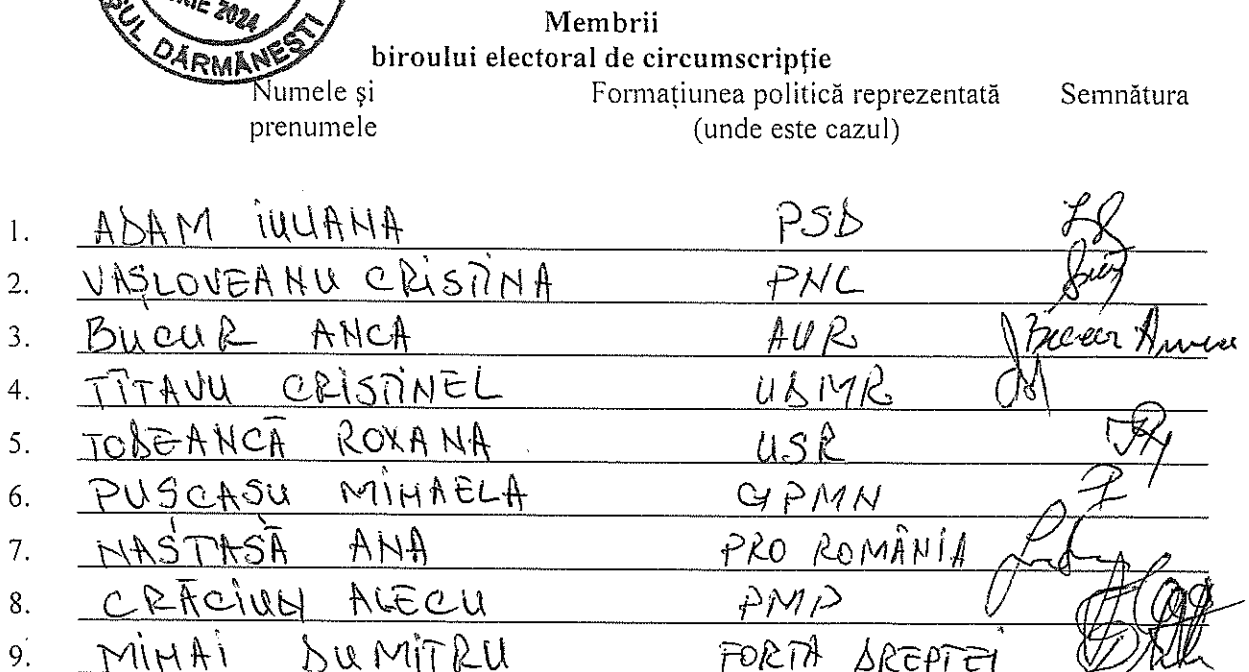 RIE 2024
PUL DĂRMĂNEȘTI
Membrii
biroului electoral de circumscripție
Numele și Formațiunea politică reprezentată Semnătura
prenumele (unde este cazul)
1. ADAM IULIANA PSD
2. VASLOVEANU CRISTINA PNL
3. BUCUR ANCA AUR Bucur Anca
4. TÎTAVU CRISTINEL UDMR
5. TODEANCĂ ROXANA USR
6. PUȘCAȘU MIHAELA GPMN
7. NASTASĂ ANA PRO ROMÂNIA
8. CRĂCIUN ALECU PMP
9. MIHAI DUMITRU FORTA DREPTEI